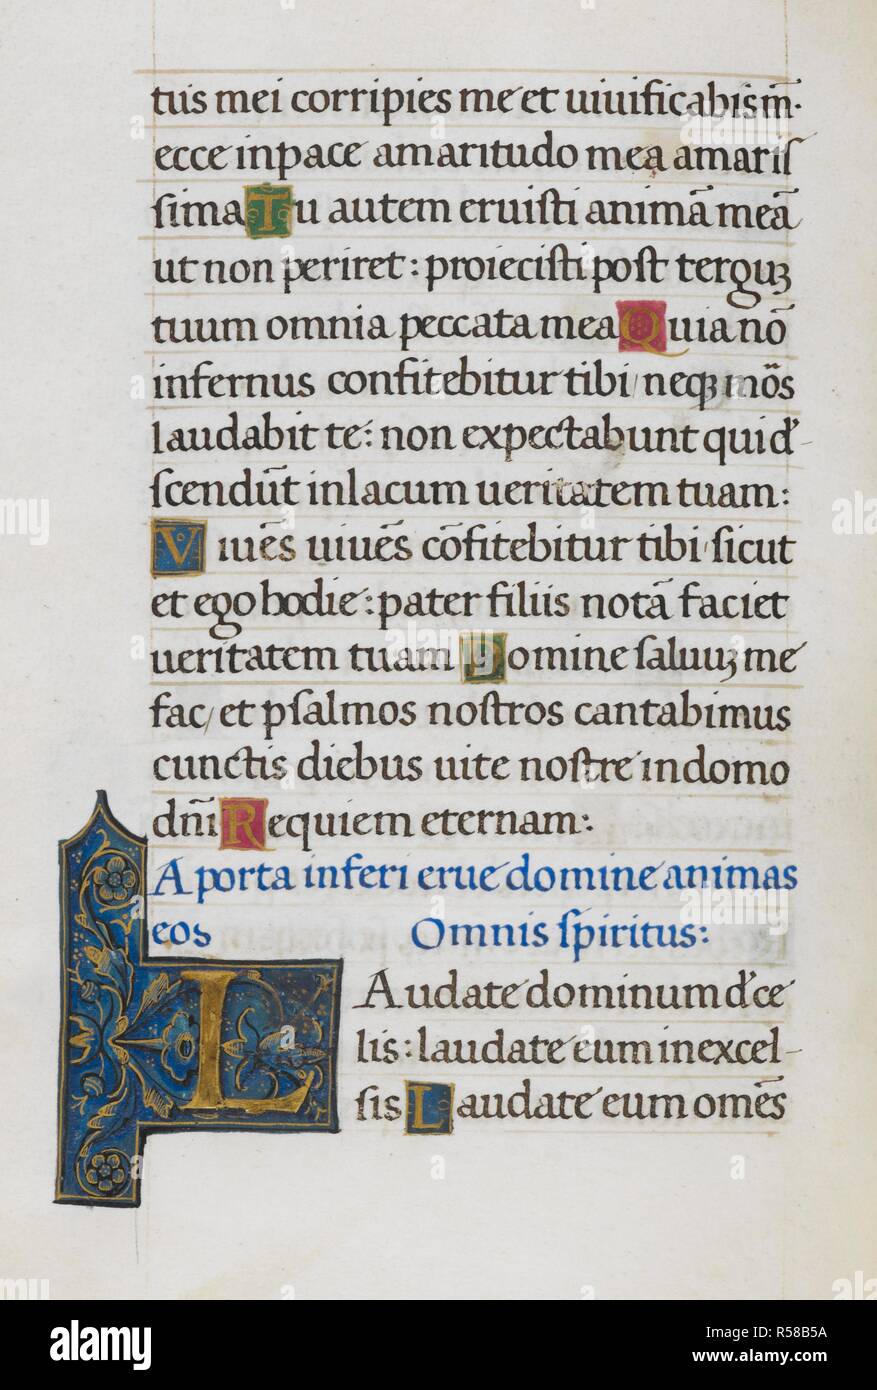 tus mei corripies me et uiuificabis m̄·
ecce in pace amaritudo mea amariſ
ſima Tu autem eruiſti animā meā
ut non periret : proieciſti poſt terguꝫ
tuum omnia peccata mea Quia nō
infernus confitebitur tibi / neqꝫ mōs
laudabit te : non expectabunt qui d'
ſcendūt in lacum ueritatem tuam :
Viuēs uiuēs cōfitebitur tibi / ſicut
et ego hodie : pater filiis notā faciet
ueritatem tuam Domine ſaluuꝫ me
fac / et pſalmos noſtros cantabimus
cunctis diebus uite noſtre in domo
dn̄i Requiem eternam :
A porta inferi erue domine animas
eos Omnis ſpiritus :
LAudate dominum d'ce
lis : laudate eum in excel-
ſis Laudate eum omēs
alamy
Image ID: R58B5A
www.alamy.com